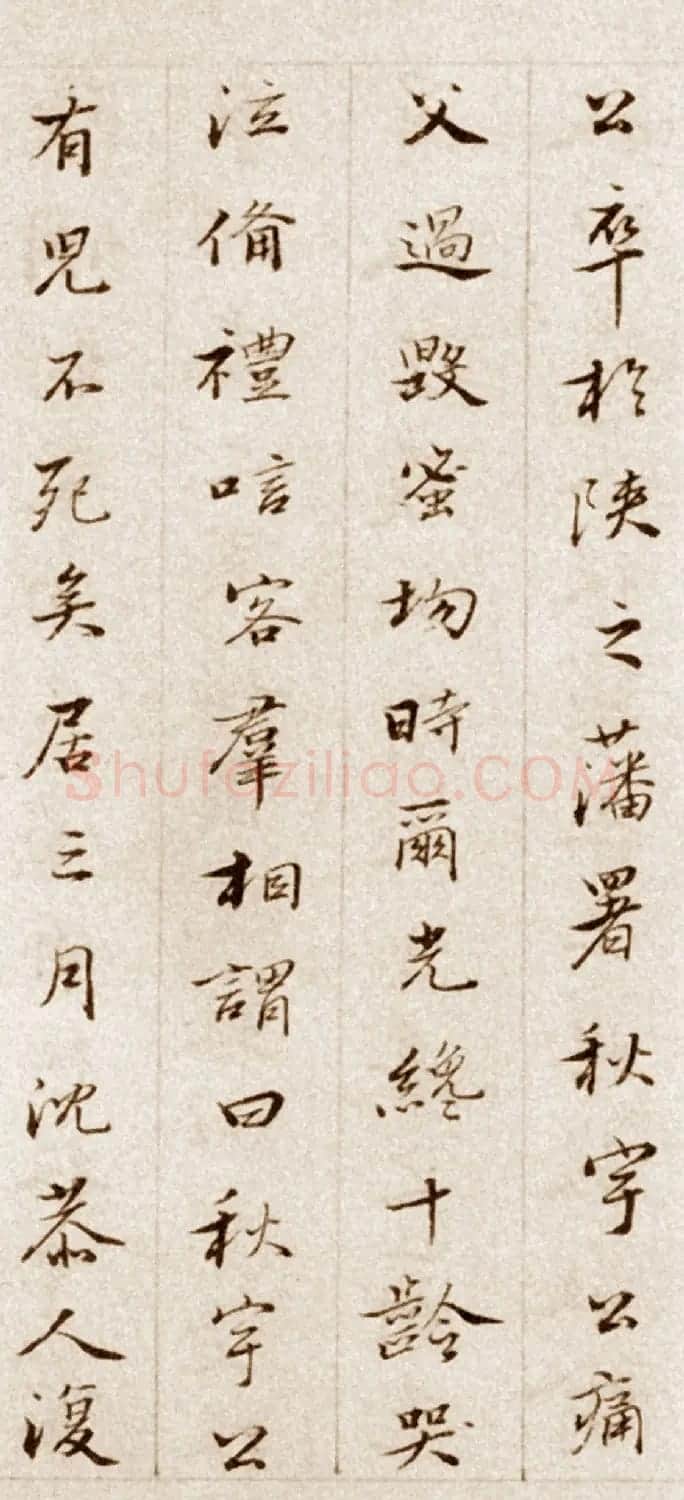 公卒於陝之藩署秋宇公痛
父過毀蜜均時爾光纔十齡哭
泣備禮唁客羣相謂曰秋宇公
有兒不死矣居三月沈恭人復
Shufaziliao.COM